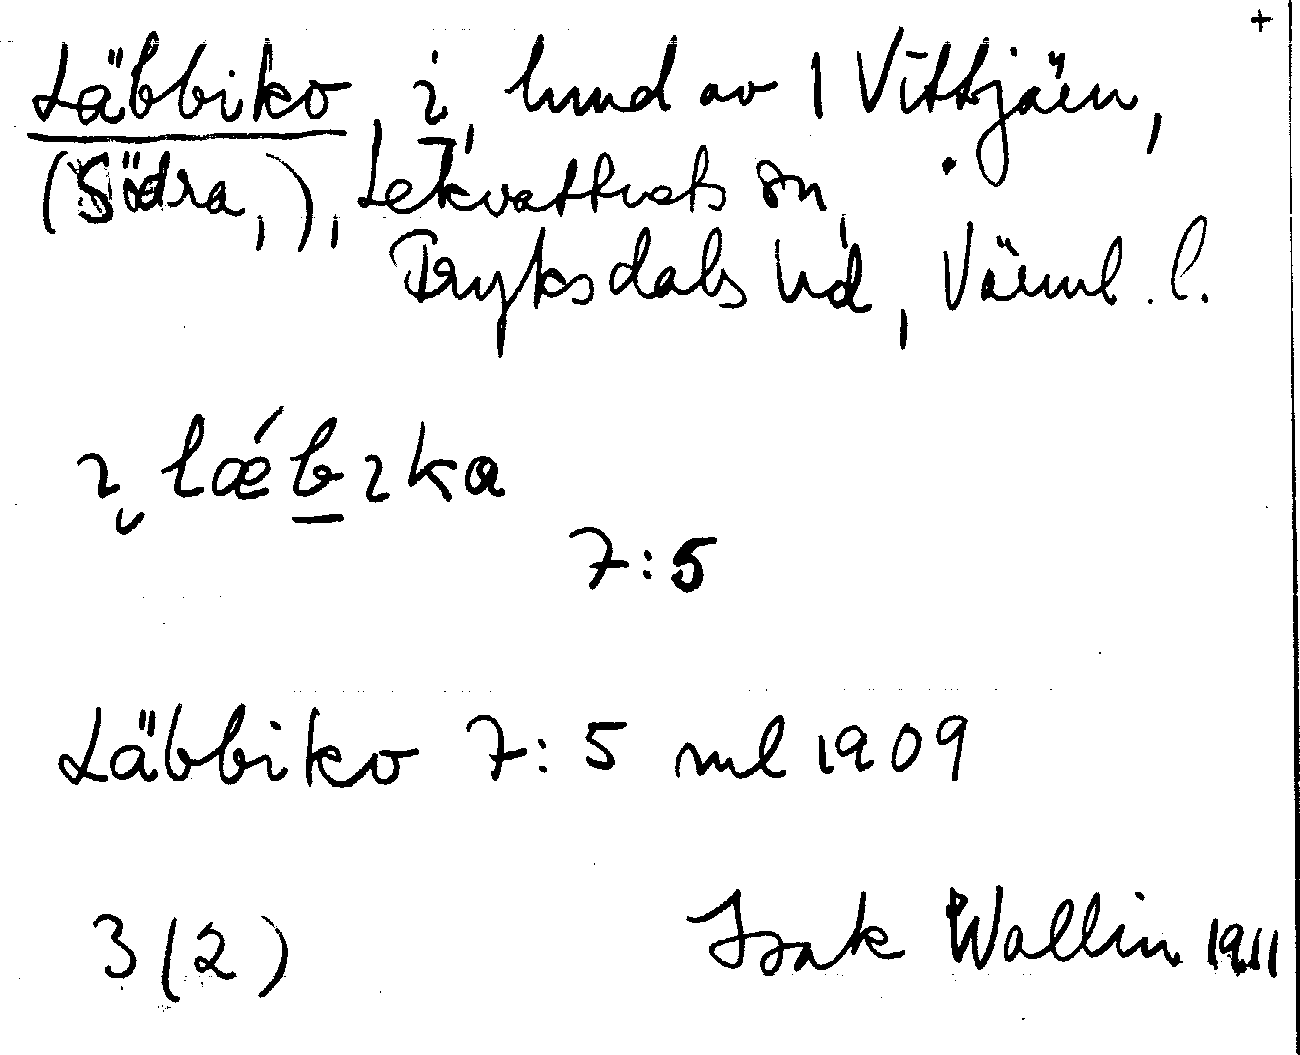 +
Läbbiko, i hmd av 1 Vittjärn,
(Södra,), Lekvattnets sn,
Fryksdals hd, Värml. l.
ı̬ lǽb̲ıka
7:5
Läbbiko 7:5 ml 1909
3 (2) Isak Wallin 1911